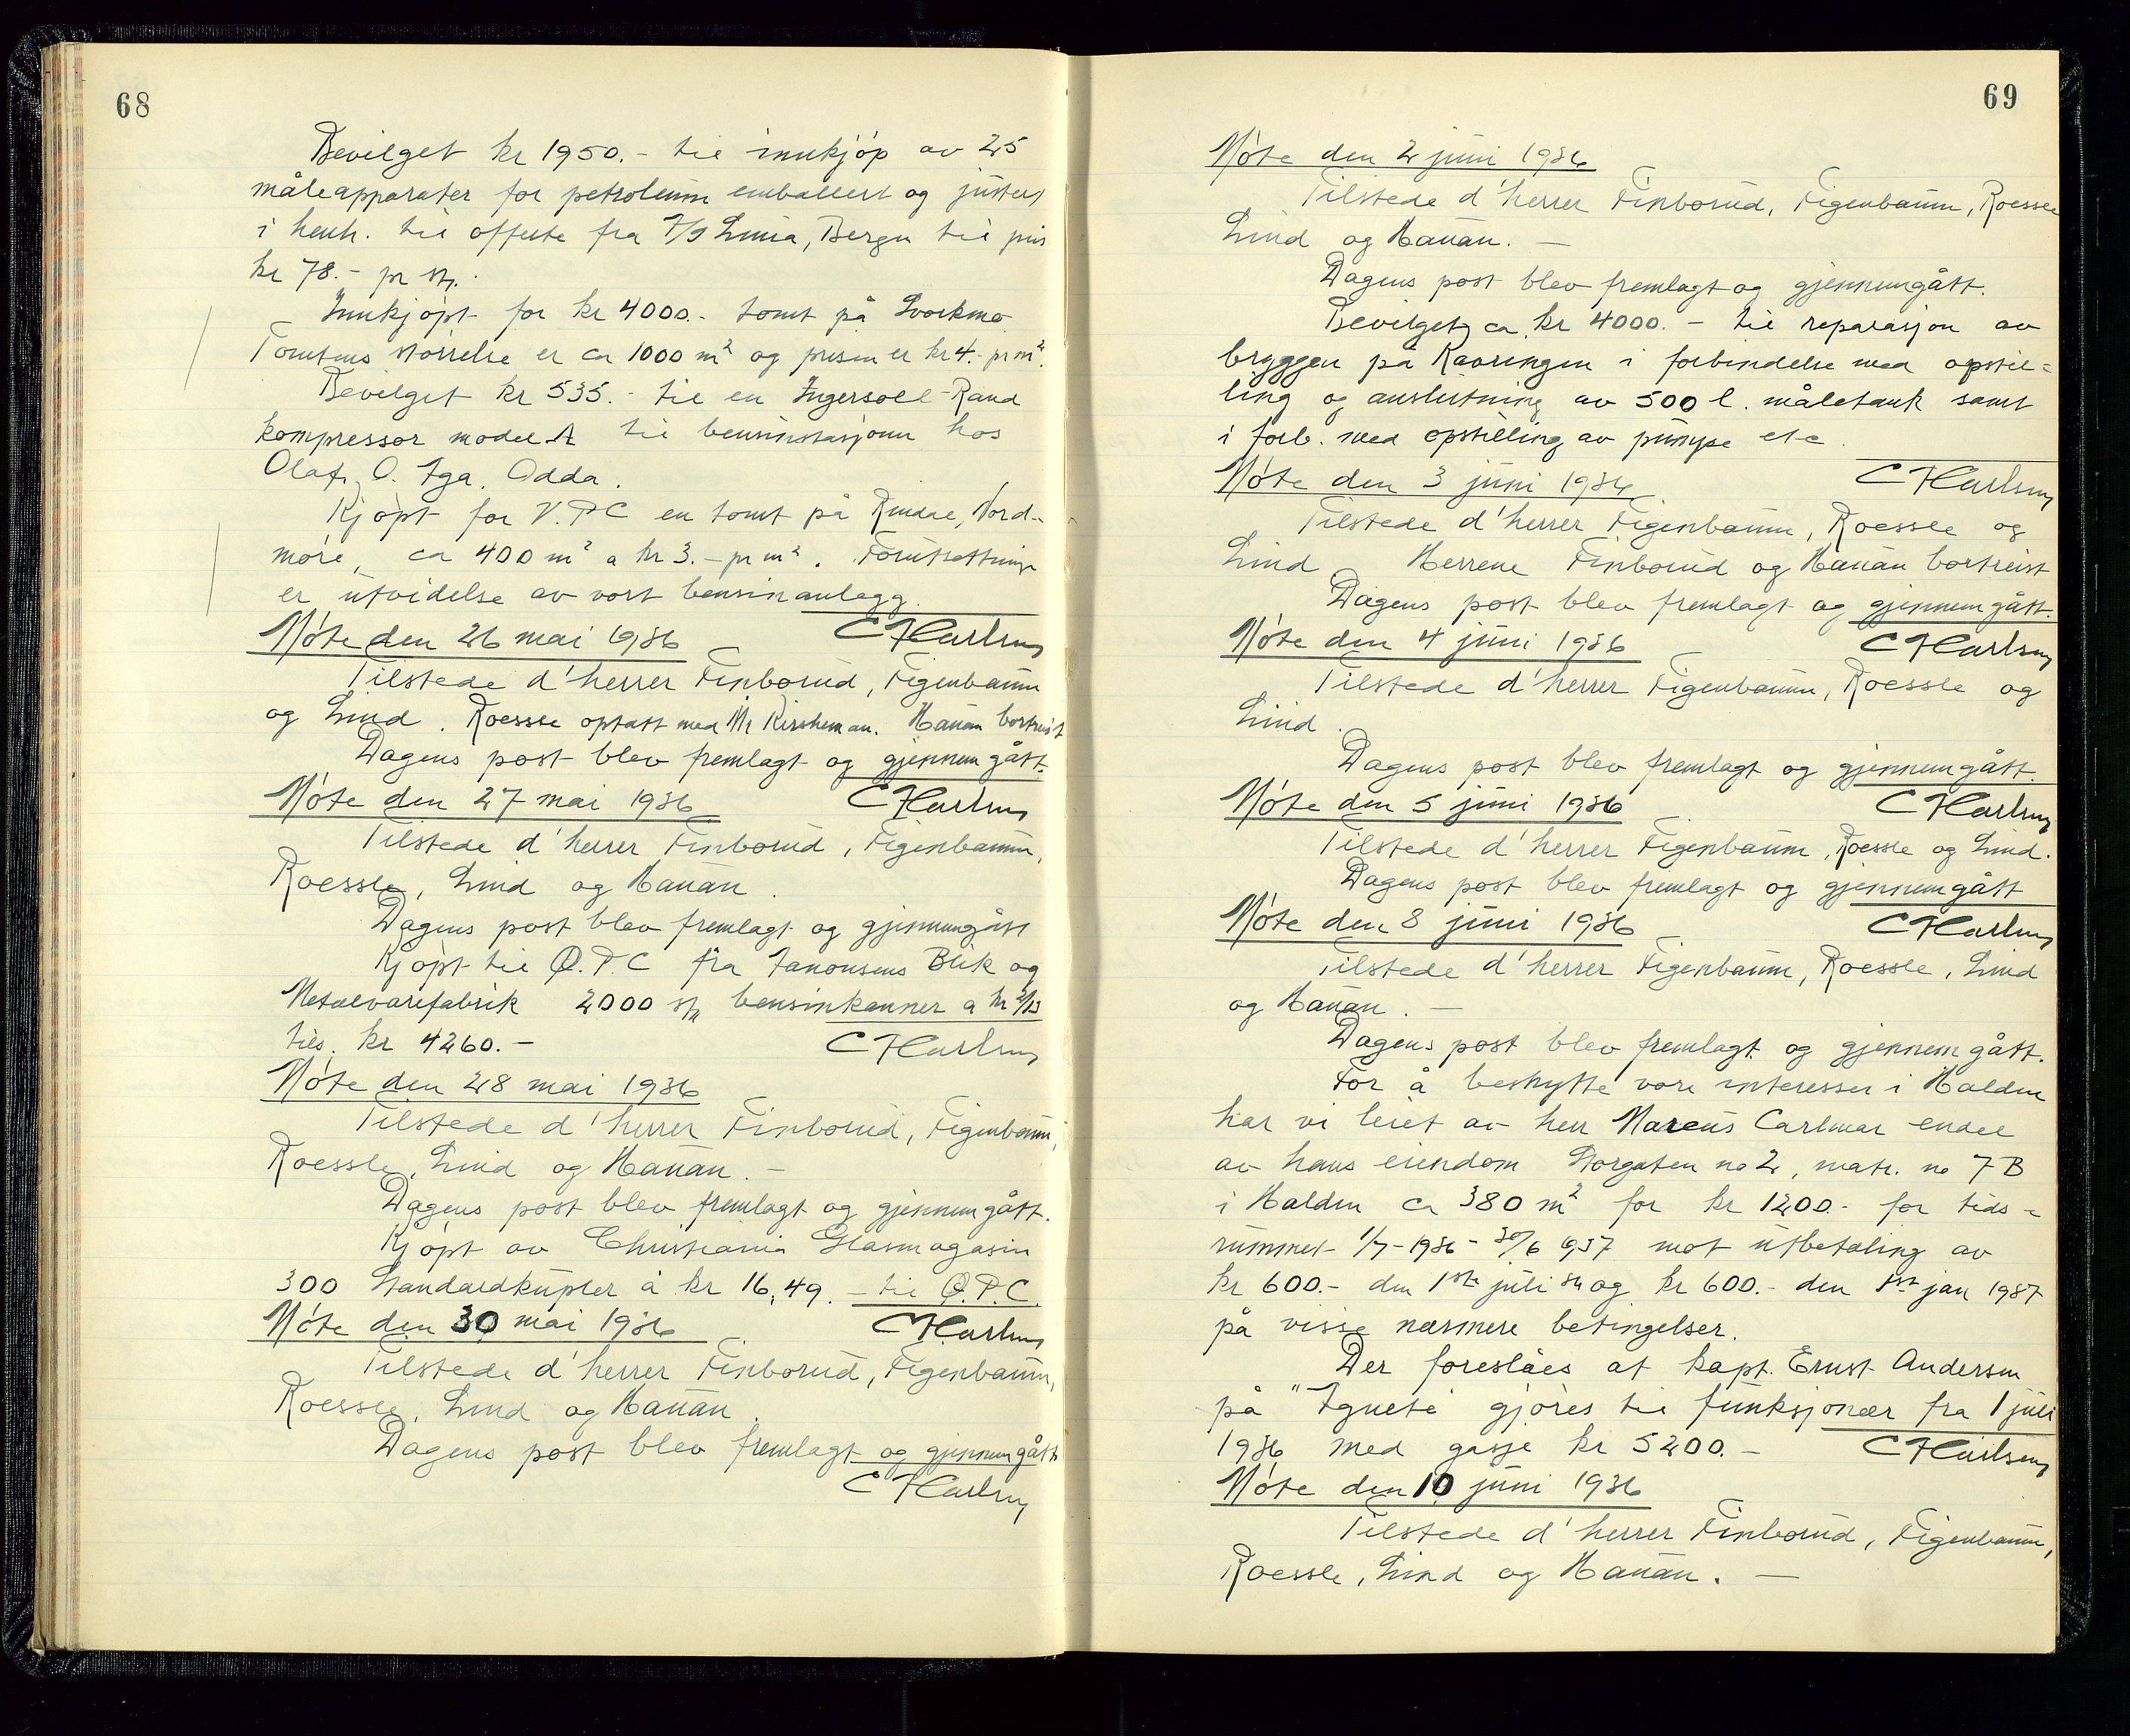 68
Bevilget kr 1950.- til innkjøp av 25
måleapparater for petroleum emballert og justert
i henh. til offerte fra A/S Linia, Bergen til pris
kr 78.- pr stk.
Innkjøpt for kr 4000.- tomt på Svorkmo
Tomtens størrelse er ca 1000 m² og prisen er kr 4.- pr m².
Bevilget kr 535.- til en Ingersoll-Rand
kompressor model A til bensinstasjonen hos
Olaf O. Aga, Odda.
Kjøpt for V.P.C en tomt på Rindal, Nord-
møre, ca 400 m² a kr 3.- pr m². Forutsetningen
er utvidelse av vort bensinanlegg.
Møte den 26 mai 1936 CHarlsen
Tilstede d'herrer Finborud, Figenbaum
og Lind. Roessle optatt med Mr Kirsheman. Hanan bortreist
Dagens post blev fremlagt og gjennemgått.
Møte den 27 mai 1936 CHarlsen
Tilstede d'herrer Finborud, Figenbaum,
Roessle, Lind og Hanan.
Dagens post blev fremlagt og gjennemgått
Kjøpt til Ø.P.C fra Janonsens Blik og
Metalvarefabrik 2000 stk bensinkanner a kr 2/13
tils. kr 4260.- CHarlsen
Møte den 28 mai 1936
Tilstede d'herrer Finborud, Figenbaum,
Roessle, Lind og Hanan.-
Dagens post blev fremlagt og gjennemgått.
Kjøpt av Christiania Glasmagasin
300 Standardkupler á kr 16,49.- til Ø.P.C.
Møte den 30 mai 1936 CHarlsen
Tilstede d'herrer Finborud, Figenbaum,
Roessle, Lind og Hanan.
Dagens post blev fremlagt og gjennemgått
CHarlsen
69
Møte den 2 juni 1936
Tilstede d'herrer Finborud, Figenbaum, Roessle
Lind og Hanan.-
Dagens post blev fremlagt og gjennemgått.
Bevilget ca kr 4000.- til reparasjon av
bryggen på Kavringen i forbindelse med opstil-
ling og anslutning av 500 l. måletank samt
i forb. med opstilling av pumpe etc.
Møte den 3 juni 1936. CHarlsen
Tilstede d'herrer Figenbaum, Roessle og
Lind Herrene Finborud og Hanan bortreist
Dagens post blev fremlagt og gjennemgått.
Møte den 4 juni 1936 CHarlsen
Tilstede d'herrer Figenbaum, Roessle og
Lind.
Dagens post blev fremlagt og gjennemgått.
Møte den 5 juni 1936 CHarlsen
Tilstede d'herrer Figenbaum, Roessle og Lind.
Dagens post blev fremlagt og gjennemgått
Møte den 8 juni 1936 CHarlsen
Tilstede d'herrer Figenbaum, Roessle, Lind
og Hanan.-
Dagens post blev fremlagt og gjennemgått.
For å beskytte vore interesser i Halden
har vi leiet av herr Marcus Carlmar endel
av hans eiendom Storgaten no 2, matr. no 7 B
i Halden ca 380 m² for kr 1200.- for tids-
rummet 1/7-1936 - 30/6 1937 mot utbetaling av
kr 600.- den 1ste juli 36 og kr 600.- den 1st jan 1937
på visse nærmere betingelser.
Der foreslåes at kapt. Ernst Andersen
på "Agnete" gjøres til funksjonær fra 1 juli
1936 med gasje kr 5200.- CHarlsen
Møte den 10 juni 1936
Tilstede d'herrer Finborud, Figenbaum,
Roessle, Lind og Hanan.-